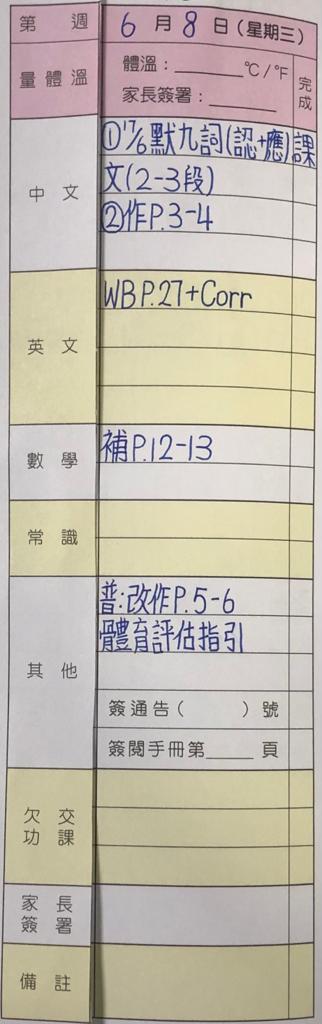 第 週 6 月 8 日(星期三)
量體溫 體溫：______℃/℉ 完成
家長簽署：______
中文 ①17/6默九詞(認+應)課
文(2-3段)
②作P.3-4
英文 WB P.27+Corr
數學 補P.12-13
常識
其他 普:改作P.5-6
體育評估指引
簽通告( )號
簽閱手冊第____頁
欠交
功課
家長
簽署
備註